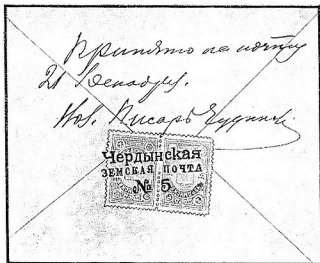 Принято на почту
21 Декабря.
Писарь
Чердынская
ЗЕМСКАЯ ПОЧТА
№ 5